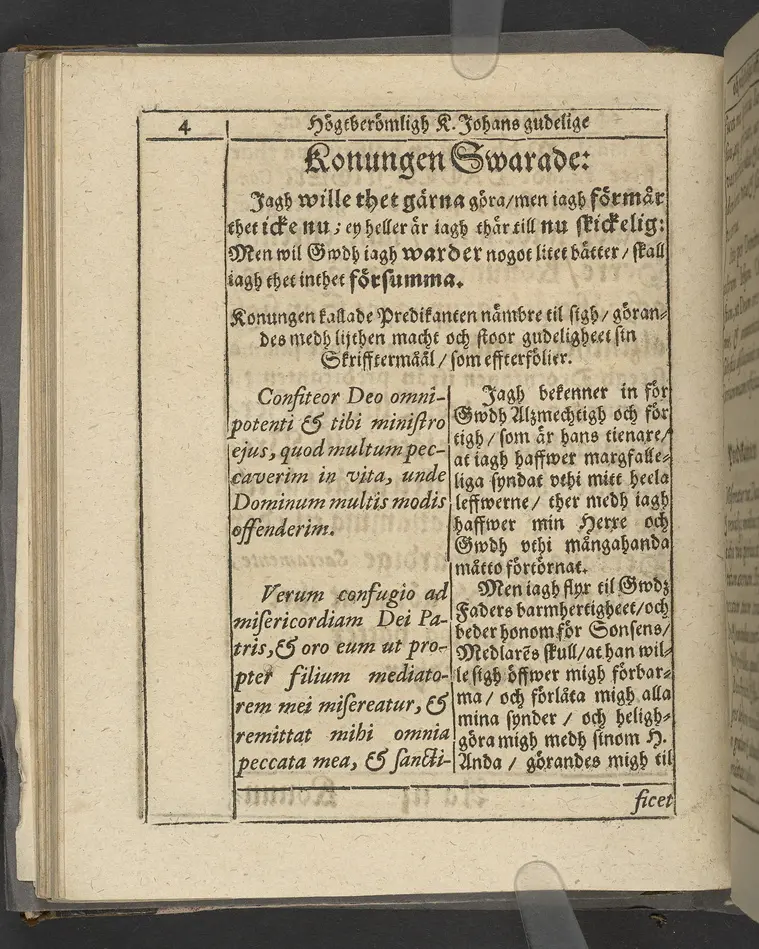 4
Högtberömligh K. Johans gudelige
Konungen Swarade:
Jagh wille thet gärna göra/men iagh förmår
thet icke nu; ey heller är iagh thär till nu skickelig:
Men wil Gwdh iagh warder nogot litet bätter/ skall
iagh thet inthet försumma.
Konungen kallade Predikanten nämbre til sigh/ göran⸗
des medh lijthen macht och stoor gudeligheet sin
Skrifftermåål/ som effterfölier.
Confiteor Deo omni-
potenti & tibi ministro
ejus, quod multum pec-
caverim in vita, unde
Dominum multis modis
offenderim.
Verum confugio ad
misericordiam Dei Pa-
tris, & oro eum ut pro-
pter filium mediato-
rem mei misereatur, &
remittat mihi omnia
peccata mea, & sancti-
Jagh bekenner in för
Gwdh Alzmechtigh och för
tigh/ som är hans tienare/
at iagh haffwer margfalle⸗
liga syndat vthi mitt heela
leffwerne/ ther medh iagh
haffwer min Herre och
Gwdh vthi mångahanda
måtto förtörnat.
Men iagh flyr til Gwdz
Faders barmhertigheet/och
beder honom för Sonsens/
Medlarēs skull/at han wil⸗
le sigh öffwer migh förbar⸗
ma/ och förlåta migh alla
mina synder/ och heligh⸗
göra migh medh sinom H.
Anda/ görandes migh til
ficet